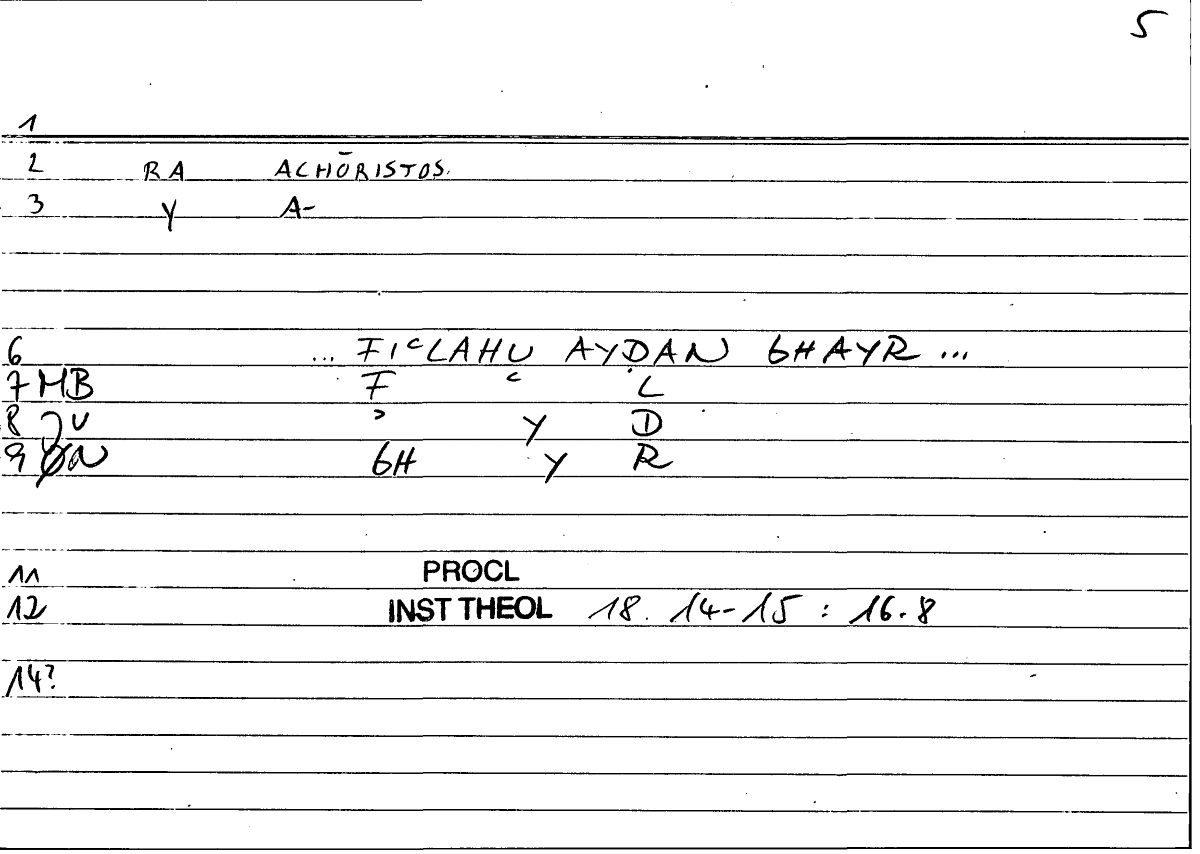 5
1
2 RA ACHŌRISTOS.
3 Y A-
6 ... FIᶜLAHU AYḌAN GHAYR ...
7 MB F ᶜ L
8 ʾ Y Ḍ
9 GH Y R
11 PROCL
12 INST THEOL 18. 14-15 : 16.8
14?